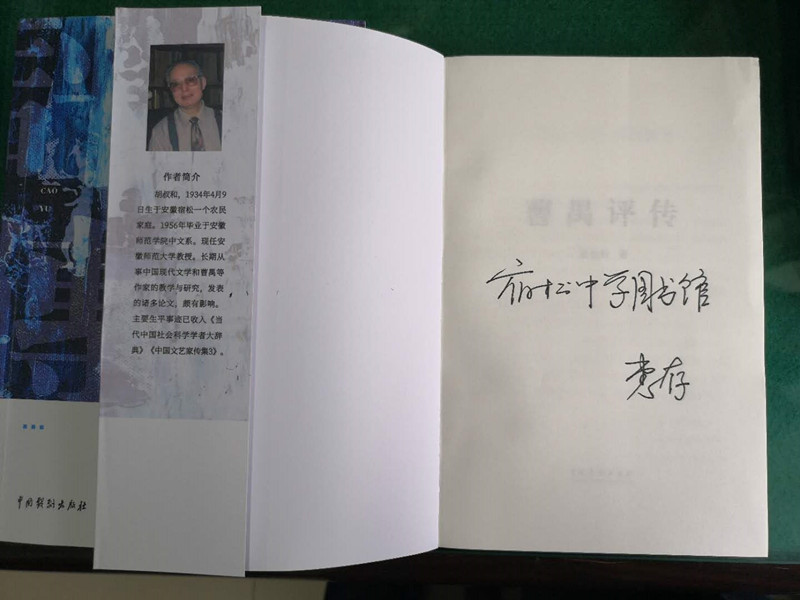 CAO
YU
中国戏剧出版社
作者简介
胡叔和，1934年4月9
日生于安徽宿松一个农民
家庭。1956年毕业于安徽
师范学院中文系。现任安
徽师范大学教授。长期从
事中国现代文学和曹禺等
作家的教学与研究，发表
的诸多论文，颇有影响。
主要生平事迹已收入《当
代中国社会科学学者大辞
典》《中国文艺家传集3》。
曹禺评传
宿松中学图书馆
惠存